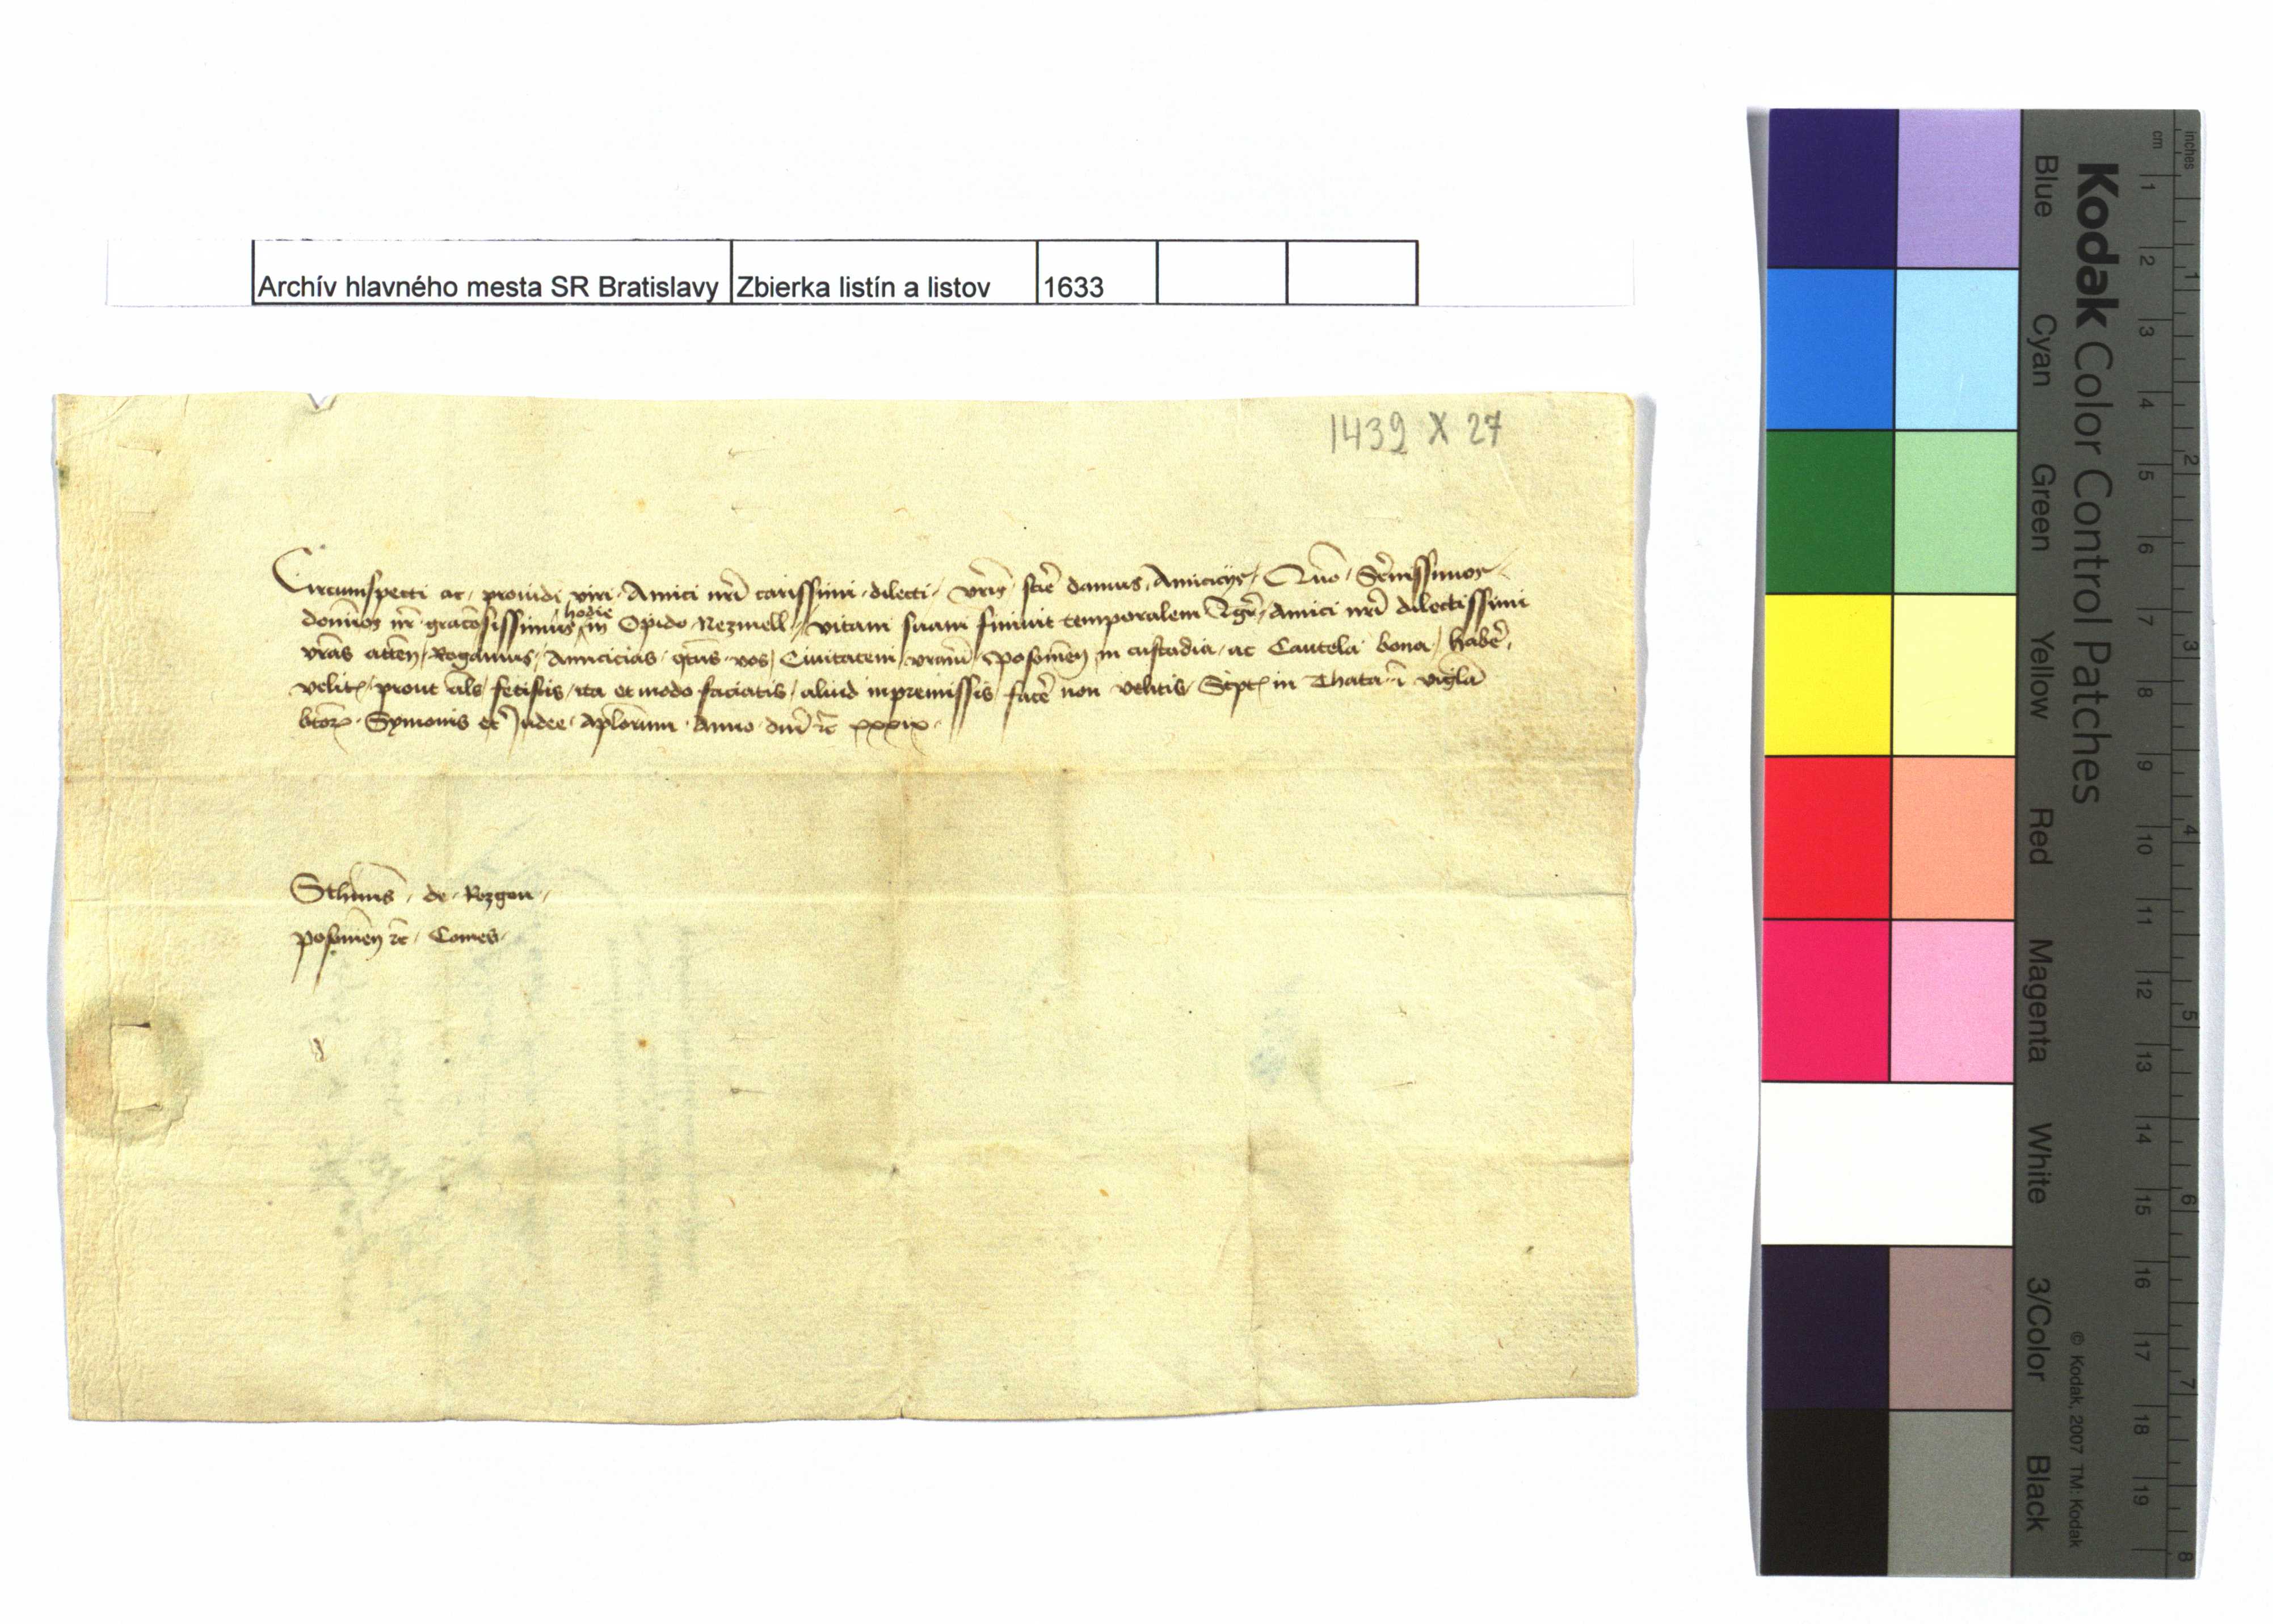 Archív hlavného mesta SR Bratislavy Zbierka listín a listov 1633
1439 X 27
Circumspecti ac prouidi viri Amici nr̄i carissimi dilecti vrīs scīe damus Amicicijs Quō Serēnissimos
domīnos nr̄ graciosissimus hodie in Opido Nezmell vitam suam finiuit temporalem Igr̄ Amici nr̄i dilectissimi
vrās attēn Rogamus Amicicias qt̄us vos Ciuitatem vrām Posonieñ in custadia ac Cautela bona habēr
velitꝭ prout al̄s fecistis ita et modo faciatis aliud inpremissis facēr non velitis Scptꝭ in Thata ī vigl̄a
btōrꝝ Symonis et Iudee Apl̄orum Anno dnī ⁊c̄ xxxix
Sthānus de Rozgon
posonieñ ⁊c̄ Comes
Kodak Color Control Patches
Blue Cyan Green Yellow Red Magenta White 3/Color Black
© Kodak, 2007 TM: Kodak
inches 1 2 3 4 5 6 7 8
cm 1 2 3 4 5 6 7 8 9 10 11 12 13 14 15 16 17 18 19